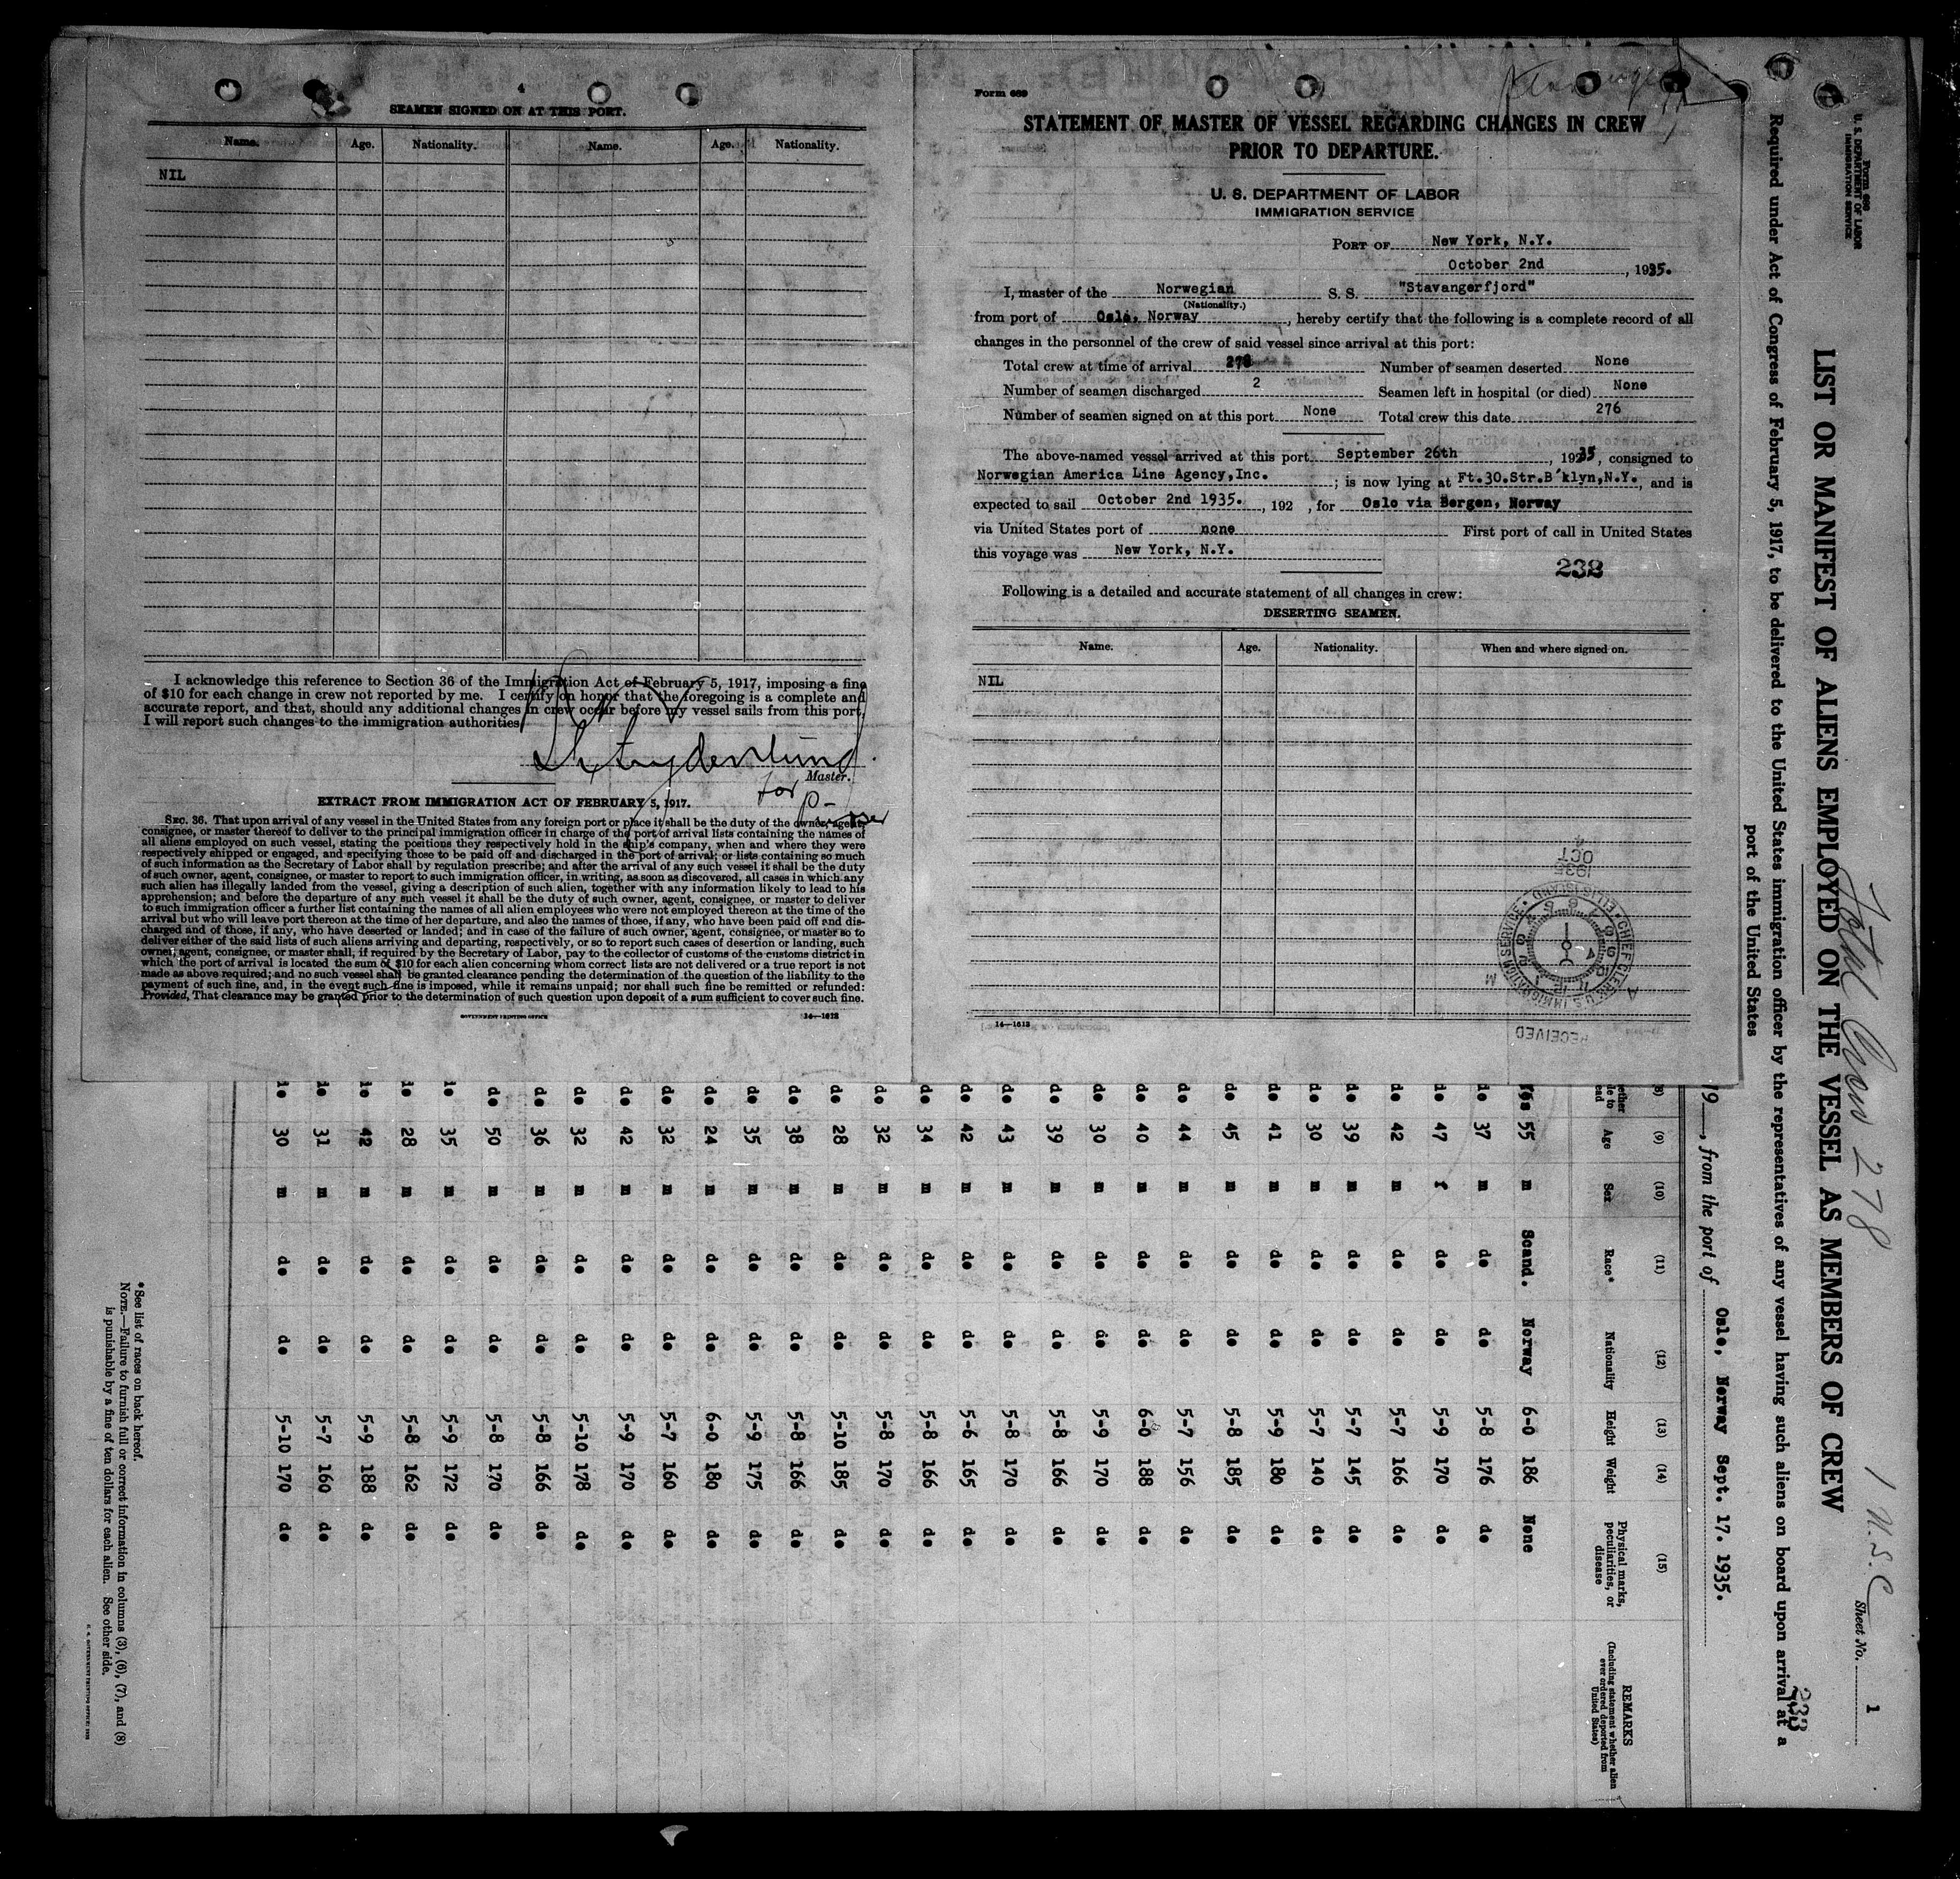 4
SEAMEN SIGNED ON AT THIS PORT.
Name. Age. Nationality. Name. Age. Nationality.
NIL
I acknowledge this reference to Section 36 of the Immigration Act of February 5, 1917, imposing a fine
of $10 for each change in crew not reported by me. I certify on honor that the foregoing is a complete and
accurate report, and that, should any additional changes in crew occur before my vessel sails from this port,
I will report such changes to the immigration authorities.
Master.
for
EXTRACT FROM IMMIGRATION ACT OF FEBRUARY 5, 1917.
SEC. 36. That upon arrival of any vessel in the United States from any foreign port or place it shall be the duty of the owner, agent,
consignee, or master thereof to deliver to the principal immigration officer in charge of the port of arrival lists containing the names of
all aliens employed on such vessel, stating the positions they respectively hold in the ship's company, when and where they were
respectively shipped or engaged, and specifying those to be paid off and discharged in the port of arrival; or lists containing so much
of such information as the Secretary of Labor shall by regulation prescribe; and after the arrival of any such vessel it shall be the duty
of such owner, agent, consignee, or master to report to such immigration officer, in writing, as soon as discovered, all cases in which any
such alien has illegally landed from the vessel, giving a description of such alien, together with any information likely to lead to his
apprehension; and before the departure of any such vessel it shall be the duty of such owner, agent, consignee, or master to deliver
to such immigration officer a further list containing the names of all alien employees who were not employed thereon at the time of the
arrival but who will leave port thereon at the time of her departure, and also the names of those, if any, who have been paid off and dis-
charged and of those, if any, who have deserted or landed; and in case of the failure of such owner, agent, consignee, or master so to
deliver either of the said lists of such aliens arriving and departing, respectively, or so to report such cases of desertion or landing, such
owner, agent, consignee, or master shall, if required by the Secretary of Labor, pay to the collector of customs of the customs district in
which the port of arrival is located the sum of $10 for each alien concerning whom correct lists are not delivered or a true report is not
made as above required; and no such vessel shall be granted clearance pending the determination of the question of the liability to the
payment of such fine, and, in the event such fine is imposed, while it remains unpaid; nor shall such fine be remitted or refunded:
Provided, That clearance may be granted prior to the determination of such question upon deposit of a sum sufficient to cover such fine.
GOVERNMENT PRINTING OFFICE 14—1613
Form 689
STATEMENT OF MASTER OF VESSEL REGARDING CHANGES IN CREW
PRIOR TO DEPARTURE.
U. S. DEPARTMENT OF LABOR
IMMIGRATION SERVICE
PORT OF New York, N.Y.
October 2nd, 1935.
I, master of the Norwegian S. S. "Stavangerfjord"
(Nationality.)
from port of Oslo, Norway, hereby certify that the following is a complete record of all
changes in the personnel of the crew of said vessel since arrival at this port:
Total crew at time of arrival 278 Number of seamen deserted None
Number of seamen discharged 2 Seamen left in hospital (or died) None
Number of seamen signed on at this port None Total crew this date 276
The above-named vessel arrived at this port September 26th, 1935, consigned to
Norwegian America Line Agency,Inc.; is now lying at Ft.30.Str.B'klyn,N.Y., and is
expected to sail October 2nd 1935., 192 , for Oslo via Bergen, Norway
via United States port of none First port of call in United States
this voyage was New York, N.Y.
238
Following is a detailed and accurate statement of all changes in crew:
DESERTING SEAMEN.
Name. Age. Nationality. When and where signed on.
NIL
1935
OCT
CHIEF CLERK U.S. IMMIGRATION SERVICE ELLIS ISLAND
RECEIVED
14—1613
Form 680
U. S. DEPARTMENT OF LABOR
IMMIGRATION SERVICE
Total Crew 278
1 U.S.C
Sheet No. 1
LIST OR MANIFEST OF ALIENS EMPLOYED ON THE VESSEL AS MEMBERS OF CREW
233
Required under Act of Congress of February 5, 1917, to be delivered to the United States immigration officer by the representatives of any vessel having such aliens on board upon arrival at a
port of the United States
19__, from the port of Oslo, Norway Sept. 17. 1935.
(9) (10) (11) (12) (13) (14) (15)
Age Sex Race* Nationality Height Weight Physical marks, peculiarities, or disease
REMARKS
(Including statement whether alien ever ordered deported from United States)
Yes 55 m Scand. Norway 6-0 186 None
do 37 m do do 5-8 176 do
do 47 f do do 5-9 170 do
do 42 m do do 5-7 166 do
do 39 m do do 5-7 145 do
do 30 m do do 5-7 140 do
do 41 m do do 5-9 180 do
do 45 m do do 5-8 185 do
do 44 m do do 5-7 156 do
do 40 m do do 6-0 188 do
do 30 m do do 5-9 170 do
do 39 m do do 5-8 166 do
do 43 m do do 5-8 170 do
do 42 m do do 5-6 165 do
do 34 m do do 5-8 166 do
do 32 m do do 5-8 170 do
do 28 m do do 5-10 185 do
do 38 m do do 5-8 166 do
do 35 m do do 5-9 175 do
do 24 m do do 6-0 180 do
do 32 m do do 5-7 160 do
do 42 m do do 5-9 170 do
do 32 m do do 5-10 178 do
do 36 m do do 5-8 166 do
do 50 m do do 5-8 170 do
do 35 m do do 5-9 172 do
do 28 m do do 5-8 162 do
do 42 m do do 5-9 188 do
do 31 m do do 5-7 160 do
do 30 m do do 5-10 170 do
*See list of races on back hereof.
NOTE.—Failure to furnish full or correct information in columns (3), (6), (7), and (8)
is punishable by a fine of ten dollars for each alien. See other side.